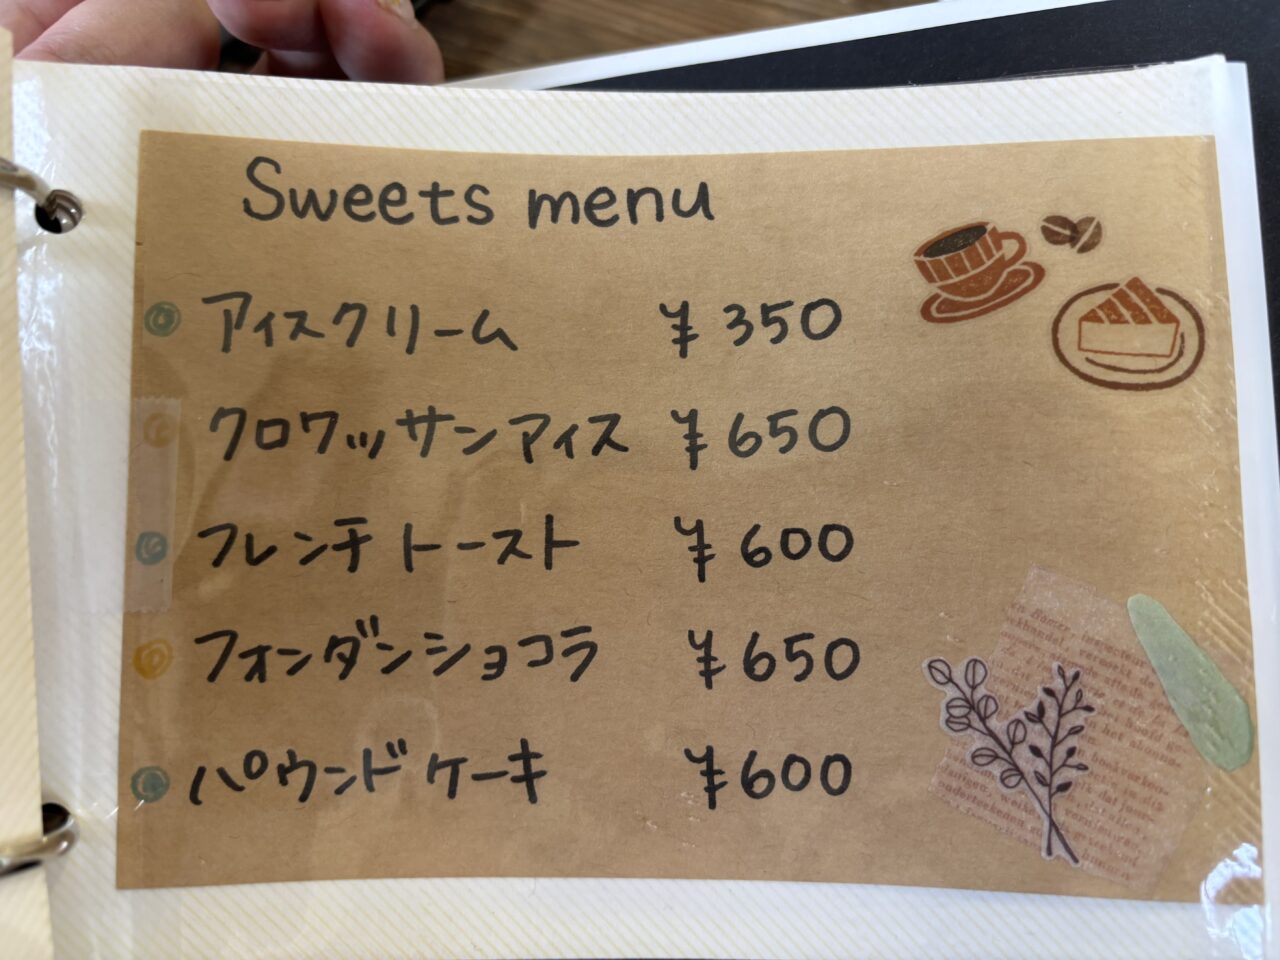 Sweets menu
アイスクリーム ¥350
クロワッサンアイス ¥650
フレンチトースト ¥600
フォンダンショコラ ¥650
パウンドケーキ ¥600